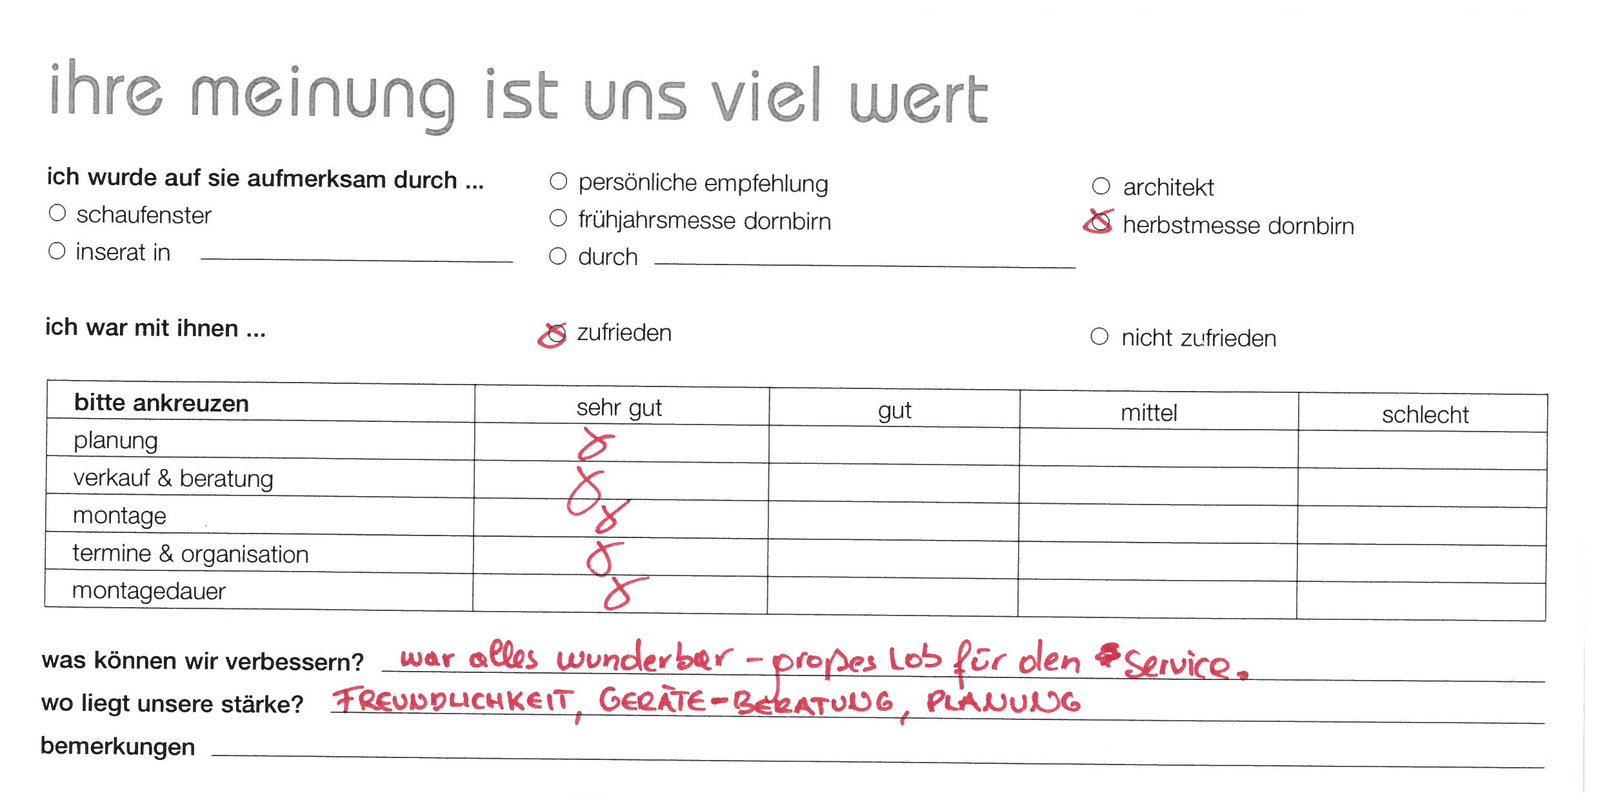 ihre meinung ist uns viel wert
ich wurde auf sie aufmerksam durch ...
persönliche empfehlung
architekt
schaufenster
frühjahrsmesse dornbirn
herbstmesse dornbirn
inserat in
durch
ich war mit ihnen ...
zufrieden
nicht zufrieden
bitte ankreuzen sehr gut gut mittel schlecht
planung
verkauf & beratung
montage
termine & organisation
montagedauer
was können wir verbessern? war alles wunderbar – großes Lob für den Service.
wo liegt unsere stärke? FREUNDLICHKEIT, GERÄTE-BERATUNG, PLANUNG
bemerkungen